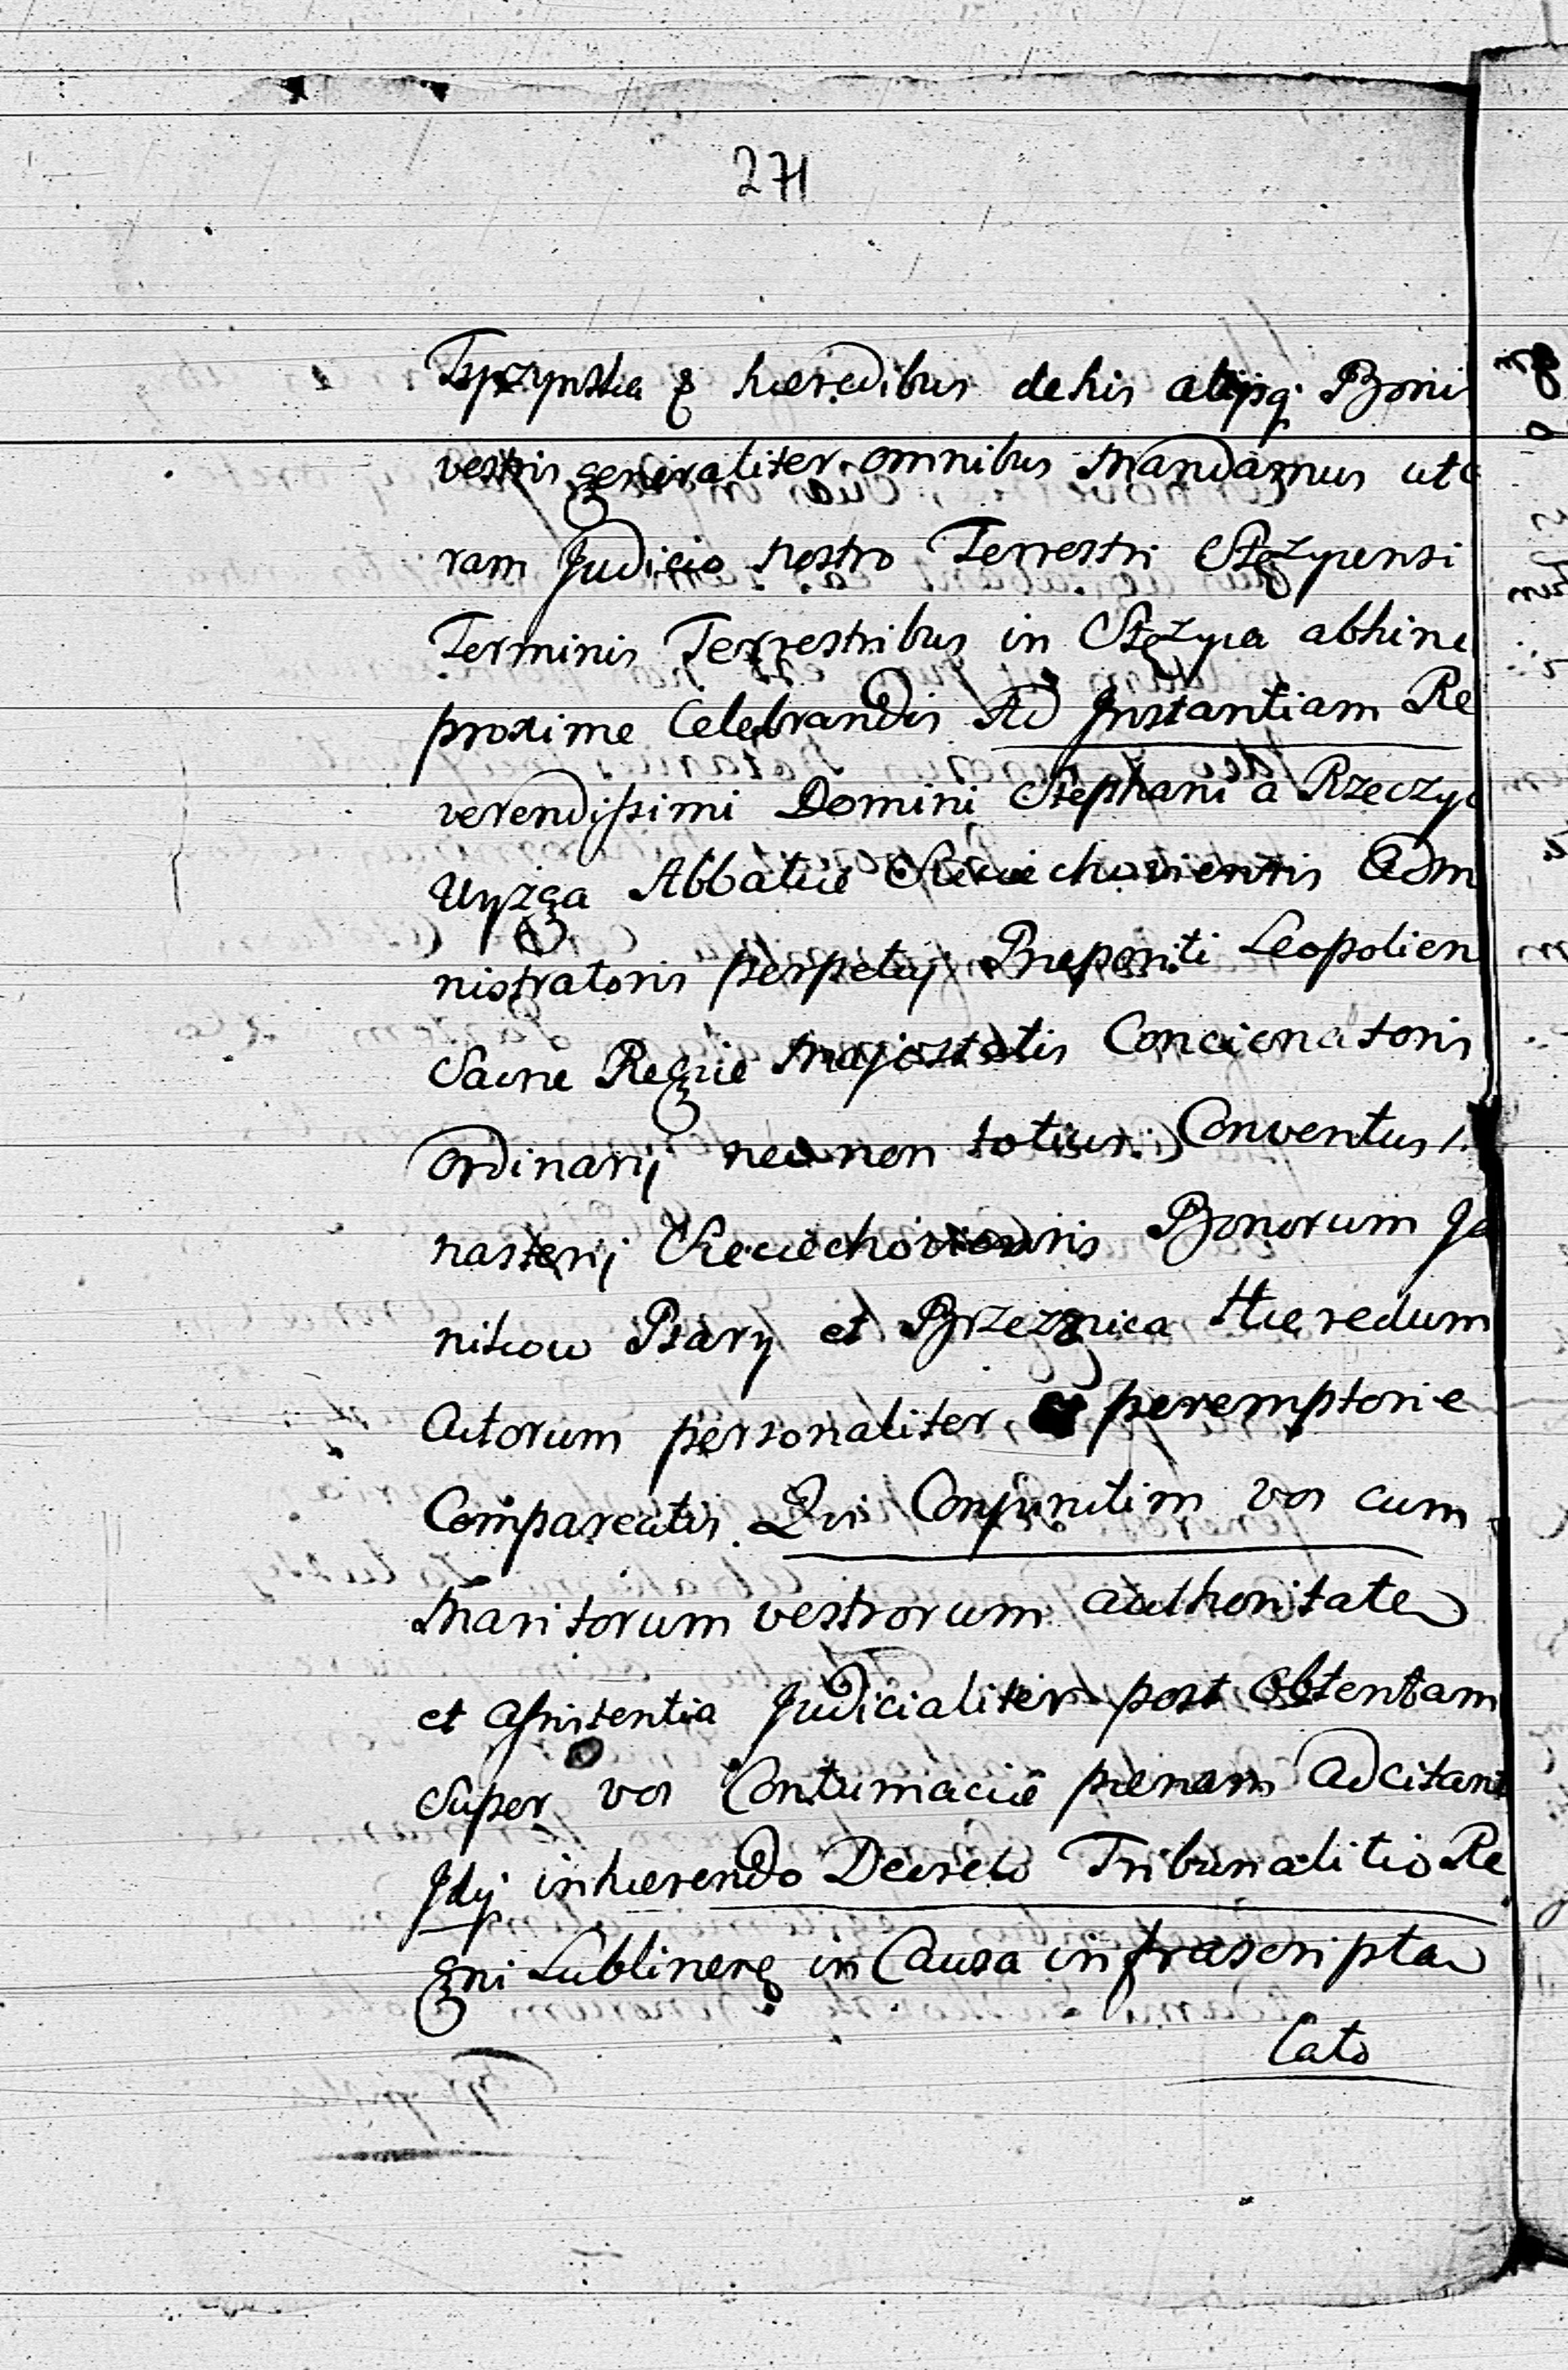 271
haeredibus de his aliisq; Boni
vestris generaliter omnibus Mandamus ut
ram Judicio nostro Terrestri Stęzycensi
Terminis Terrestribus in Stęzyca abhinc
proxime Celebrandis Ad Instantiam Re
verendissimi Domini Stephani a Rzeczyc
Uyzga Abbatiae Sieciechoviensis Adm
nistratoris perpetuj Praepositi Leopolien
Sacrae Regiae Majestatis Concionatoris
Ordinarij nec non totius Conventus
nasterij Sieciechoviensis Bonorum Ja
nikow Psary et Brzeznica Haeredum
Actorum personaliter, et peremptorie
Compareatis. Qui Conjunctim vos cum
Maritorum vestrorum authoritate
et assistentia Judicialiter post obtentam
Super vos Contumaciae paenam Adcitant
Idq; inhaerendo Decreto Tribunalitio Re
gni Lublinens in Causa infrascripta
Lato